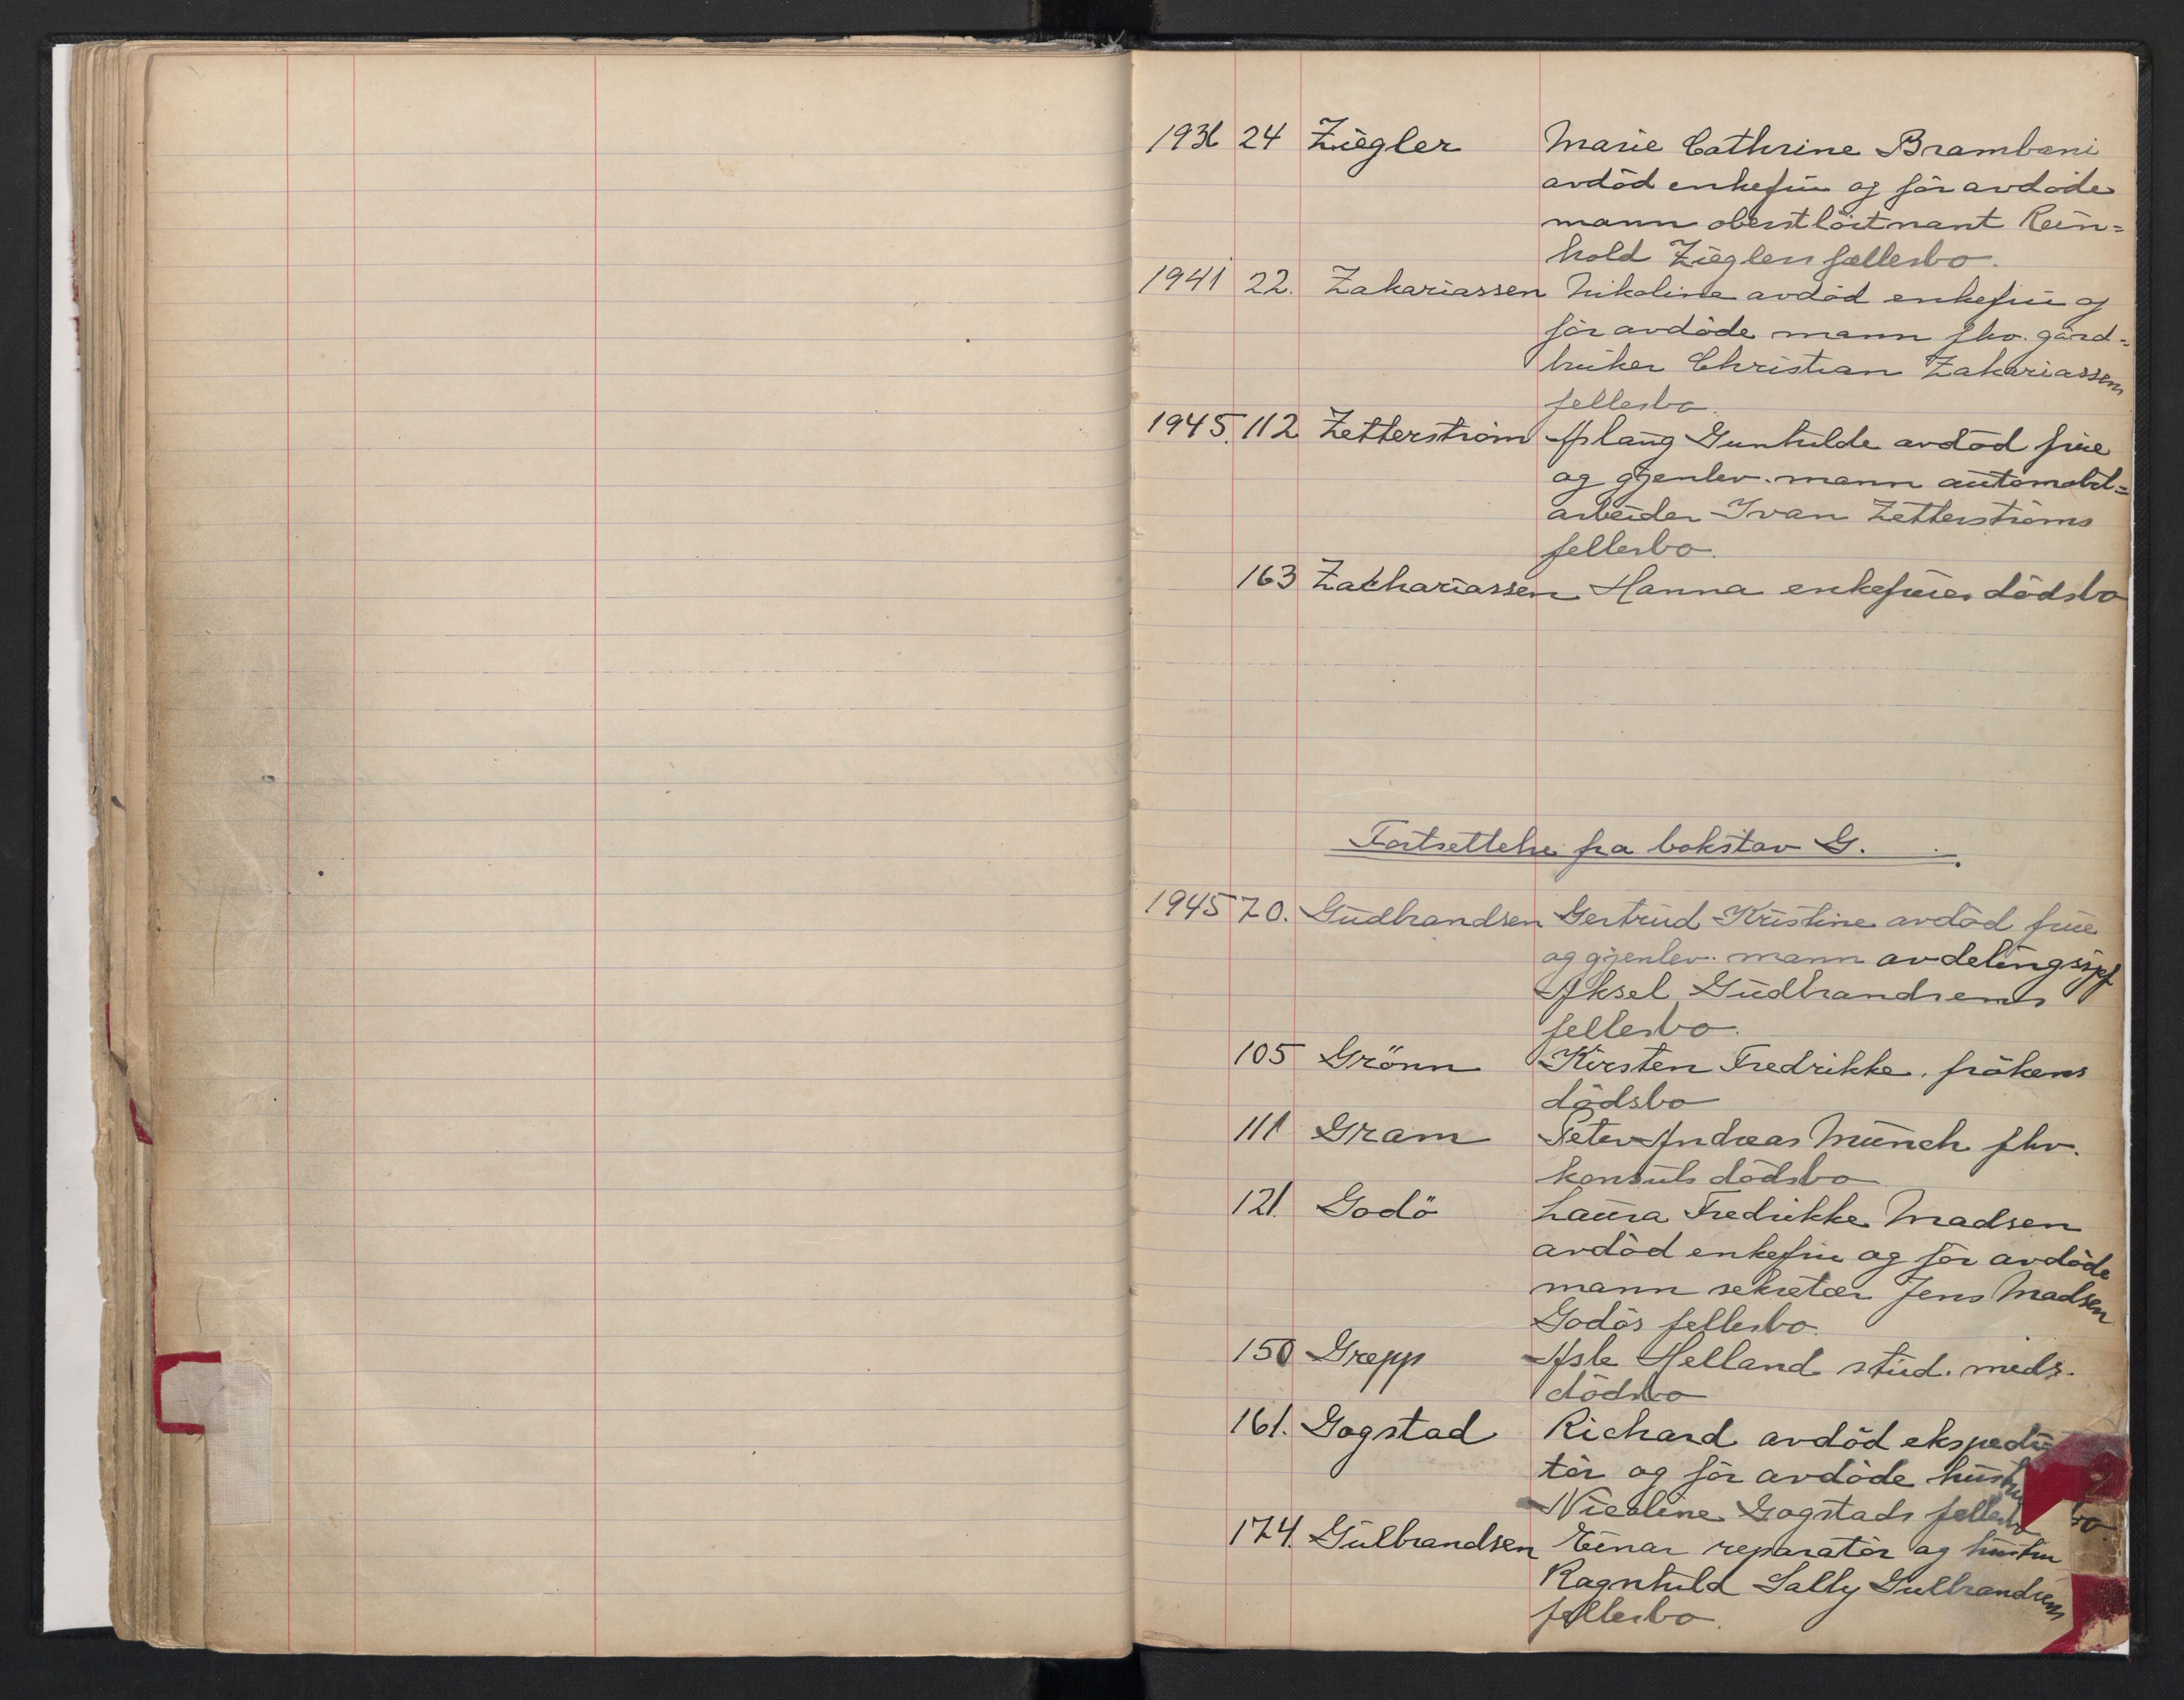 1936 24 Ziegler Marie Cathrine Brambani
avdöd enkefru og för avdöde
mann oberstlöitnant Rein=
hold Zieglers fællesbo.
1941 22. Zakariassen Nikoline avdöd enkefru og
för avdöde mann fhv. gård=
bruker Christian Zakariassens
fellesbo.
1945. 112 Zetterström Aslaug Gunhilde avdöd frue
og gjenlev. mann automobil=
arbeider Ivan Zetterströms
fellesbo.
163 Zachariassen Hanna enkefrues dödsbo
Fortsettelse fra bokstav G.
1945 70. Gudbrandsen Gertrud Kristine avdöd frue
og gjenlev. mann avdelingssjef
Aksel Gudbrandsens
fellesbo.
105 Grönn Kirsten Fredrikke. frökens
dödsbo
111 Gram Peter Andreas Munch fhv.
konsuls dödsbo
121. Godö Laura Fredrikke Madsen
avdöd enkefru og för avdöde
mann sekretær Jens Madsen
Godös fellesbo.
150 Grepp Asle Helland stud. meds.
dödsbo
161. Gogstad Richard avdöd ekspedi=
tör og för avdöde hustru
Nicoline Gogstads fellesbo
174. Gulbrandsen Einar reparatör og hustru
Ragnhild Sally Gulbrandsens
fellesbo.